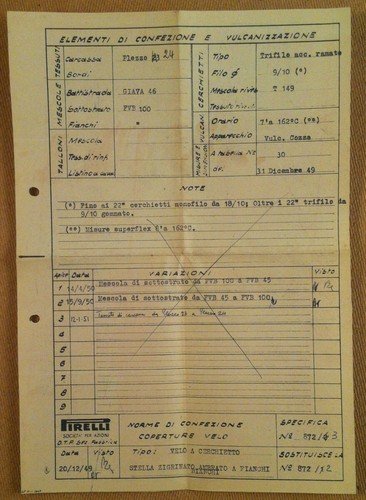 ELEMENTI DI CONFEZIONE E VULCANIZZAZIONE
TESSUTI
Carcassa Flezzo 24
Bordi
MESCOLE
Battistrada GIAVA 46
Sottostrato FVB 100
Fianchi "
TALLONI
Mescola
Tess. di rinf.
Listino
CERCHIETTI
Tipo Trifilo acc. ramato
Filo Ø 9/10 (*)
Mescola rivest. T 149
Tessuto rivest.
VULCAN.
Orario 7'a 162°C (**)
Apparecchio Vulc. Cozza
MISURE E
A tabella N° 30
del 31 Dicembre 49
NOTE
(*) Fino ai 22" cerchietti monofilo da 18/10; Oltre i 22" trifilo da
9/10 gommato.
(**) Misure superflex 7'a 162°C.
VARIAZIONI
Data Visto
1 14/4/50 Mescola di sottostrato da FVB 100 a FVB 45
2 15/9/50 Mescola di sottostrato da FVB 45 a FVB 100
3 12-1-51
4
5
6
7
8
9
PIRELLI
SOCIETÀ PER AZIONI
Data Visto
20/12/49
NORME DI CONFEZIONE
COPERTURE VELO
TIPO: VELO A CERCHIETTO
STELLA ZIGRINATO AMBRATO A FIANCHI
BIANCHI
SPECIFICA
N° 872/3
SOSTITUISCE LA
N° 872/12